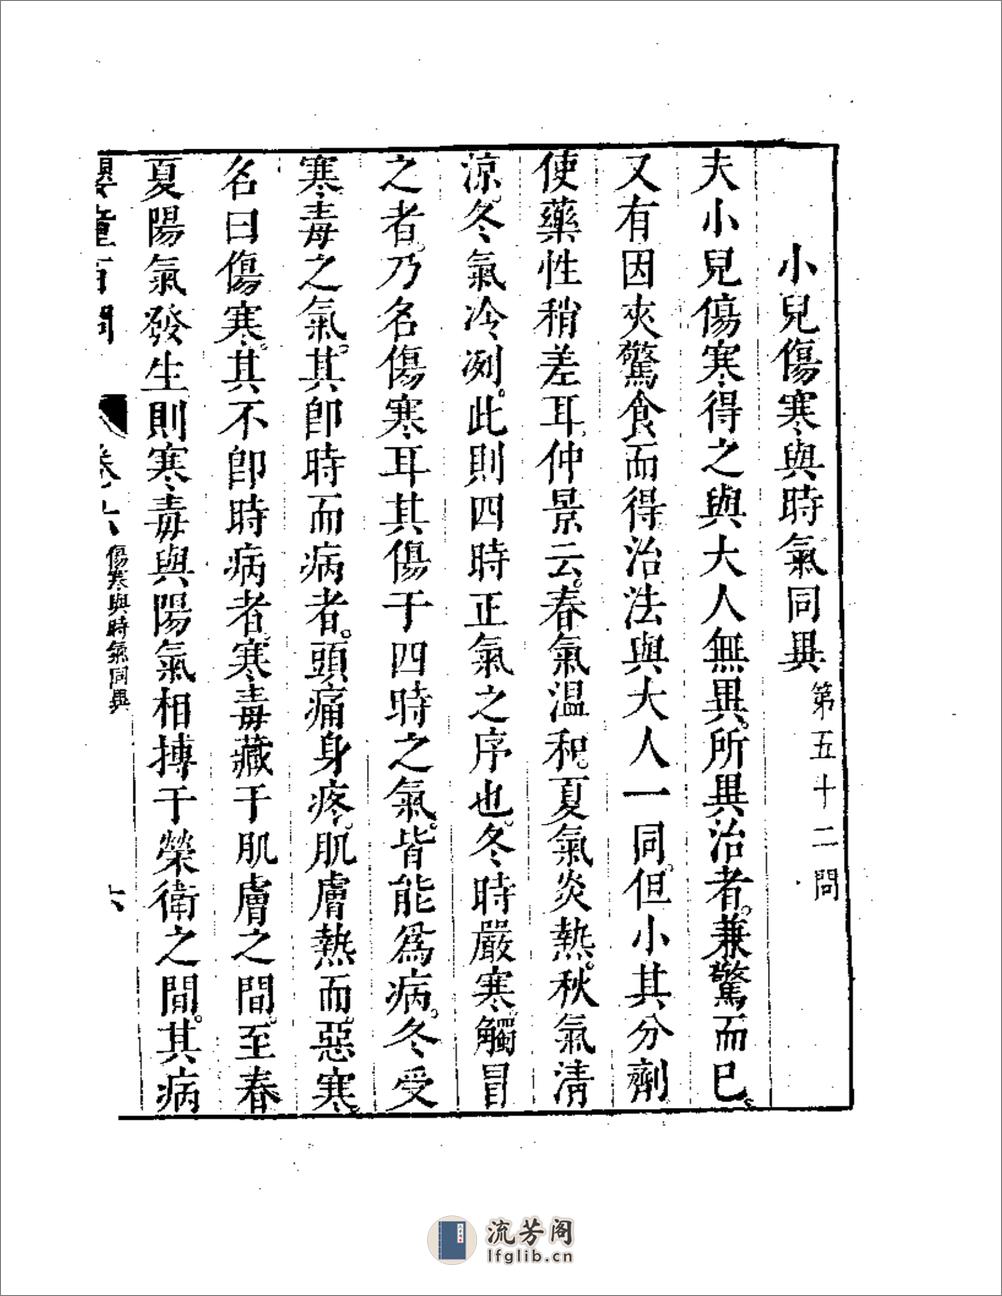 小兒傷寒與時氣同異 第五十二問
夫小兒傷寒得之與大人無異。所異治者。兼驚而已。
又有因夾驚食而得治法與大人一同。但小其分劑
使藥性稍差耳。仲景云。春氣溫和。夏氣炎熱。秋氣清
涼。冬氣冷冽。此則四時正氣之序也。冬時嚴寒。觸冒
之者。乃名傷寒耳其傷于四時之氣。皆能爲病。冬受
寒毒之氣。其卽時而病者。頭痛身疼。肌膚熱而。惡寒。
名曰傷寒。其不卽時病者。寒毒藏于肌膚之間。至春
夏陽氣發生則寒毒與陽氣相搏于榮衛之間。其病
嬰童百問 卷六 傷寒與時氣同異 六
流芳阁
lfglib.cn